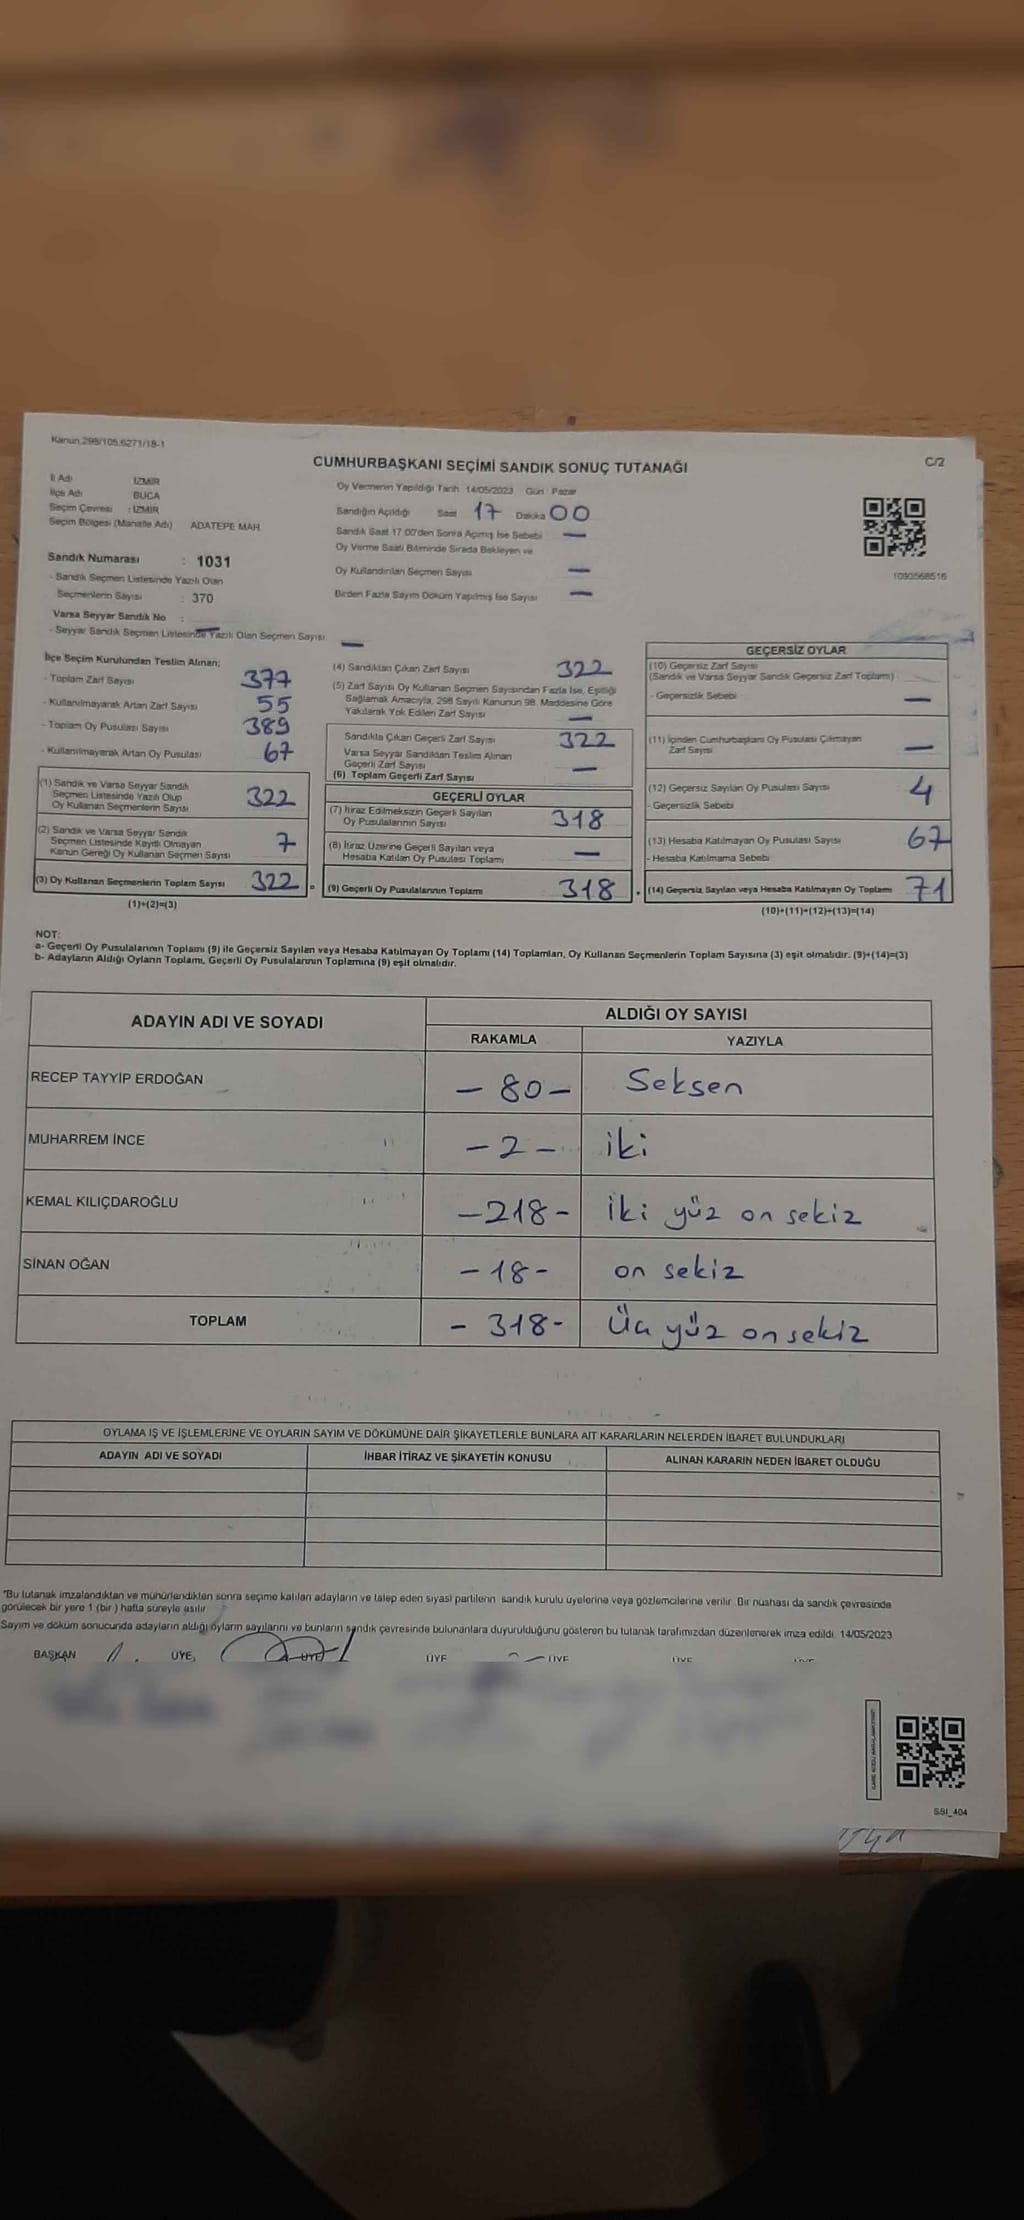 Kanun.298/105,6271/18-1
C/2
CUMHURBAŞKANI SEÇİMİ SANDIK SONUÇ TUTANAĞI
İl Adı İZMİR
İlçe Adı BUCA
Seçim Çevresi : İZMİR
Seçim Bölgesi (Mahalle Adı) ADATEPE MAH.
Oy Vermenin Yapıldığı Tarih 14/05/2023 Gün : Pazar
Sandığın Açıldığı Saat 17 Dakika 00
Sandık Saat 17:00'den Sonra Açılmış İse Sebebi —
Oy Verme Saati Bitiminde Sırada Bekleyen ve
Oy Kullandırılan Seçmen Sayısı —
Birden Fazla Sayım Döküm Yapılmış İse Sayısı —
1090568516
Sandık Numarası : 1031
- Sandık Seçmen Listesinde Yazılı Olan
Seçmenlerin Sayısı : 370
Varsa Seyyar Sandık No : —
- Seyyar Sandık Seçmen Listesinde Yazılı Olan Seçmen Sayısı —
İlçe Seçim Kurulundan Teslim Alınan;
- Toplam Zarf Sayısı 377
- Kullanılmayarak Artan Zarf Sayısı 55
- Toplam Oy Pusulası Sayısı 389
- Kullanılmayarak Artan Oy Pusulası 67
(1) Sandık ve Varsa Seyyar Sandık
Seçmen Listesinde Yazılı Olup
Oy Kullanan Seçmenlerin Sayısı 322
(2) Sandık ve Varsa Seyyar Sandık
Seçmen Listesinde Kayıtlı Olmayan
Kanun Gereği Oy Kullanan Seçmen Sayısı 7
(3) Oy Kullanan Seçmenlerin Toplam Sayısı 322
(1)+(2)=(3)
(4) Sandıktan Çıkan Zarf Sayısı 322
(5) Zarf Sayısı Oy Kullanan Seçmen Sayısından Fazla İse, Eşitliği
Sağlamak Amacıyla, 298 Sayılı Kanunun 98. Maddesine Göre
Yakılarak Yok Edilen Zarf Sayısı —
Sandıkta Çıkan Geçerli Zarf Sayısı 322
Varsa Seyyar Sandıktan Teslim Alınan
Geçerli Zarf Sayısı —
(6) Toplam Geçerli Zarf Sayısı
GEÇERLİ OYLAR
(7) İtiraz Edilmeksizin Geçerli Sayılan
Oy Pusulalarının Sayısı 318
(8) İtiraz Üzerine Geçerli Sayılan veya
Hesaba Katılan Oy Pusulası Toplamı —
(9) Geçerli Oy Pusulalarının Toplamı 318
GEÇERSİZ OYLAR
(10) Geçersiz Zarf Sayısı
(Sandık ve Varsa Seyyar Sandık Geçersiz Zarf Toplamı)
- Geçersizlik Sebebi —
(11) İçinden Cumhurbaşkanı Oy Pusulası Çıkmayan
Zarf Sayısı —
(12) Geçersiz Sayılan Oy Pusulası Sayısı 4
- Geçersizlik Sebebi
(13) Hesaba Katılmayan Oy Pusulası Sayısı 67
- Hesaba Katılmama Sebebi
(14) Geçersiz Sayılan veya Hesaba Katılmayan Oy Toplamı 71
(10)+(11)+(12)+(13)=(14)
NOT:
a- Geçerli Oy Pusulalarının Toplamı (9) ile Geçersiz Sayılan veya Hesaba Katılmayan Oy Toplamı (14) Toplamları, Oy Kullanan Seçmenlerin Toplam Sayısına (3) eşit olmalıdır. (9)+(14)=(3)
b- Adayların Aldığı Oyların Toplamı, Geçerli Oy Pusulalarının Toplamına (9) eşit olmalıdır.
ADAYIN ADI VE SOYADI ALDIĞI OY SAYISI
RAKAMLA YAZIYLA
RECEP TAYYİP ERDOĞAN – 80 – Seksen
MUHARREM İNCE – 2 – iki
KEMAL KILIÇDAROĞLU – 218 – iki yüz on sekiz
SİNAN OĞAN – 18 – on sekiz
TOPLAM – 318 – Üç yüz on sekiz
OYLAMA İŞ VE İŞLEMLERİNE VE OYLARIN SAYIM VE DÖKÜMÜNE DAİR ŞİKAYETLERLE BUNLARA AİT KARARLARIN NELERDEN İBARET BULUNDUKLARI
ADAYIN ADI VE SOYADI İHBAR İTİRAZ VE ŞİKAYETİN KONUSU ALINAN KARARIN NEDEN İBARET OLDUĞU
"Bu tutanak imzalandıktan ve mühürlendikten sonra seçime katılan adayların ve talep eden siyasi partilerin sandık kurulu üyelerine veya gözlemcilerine verilir. Bir nüshası da sandık çevresinde
görülecek bir yere 1 (bir) hafta süreyle asılır.
Sayım ve döküm sonucunda adayların aldığı oyların sayılarını ve bunların sandık çevresinde bulunanlara duyurulduğunu gösteren bu tutanak tarafımızdan düzenlenerek imza edildi. 14/05/2023
BAŞKAN ÜYE, ÜYE ÜYE ÜYE ÜYE
SSI_404